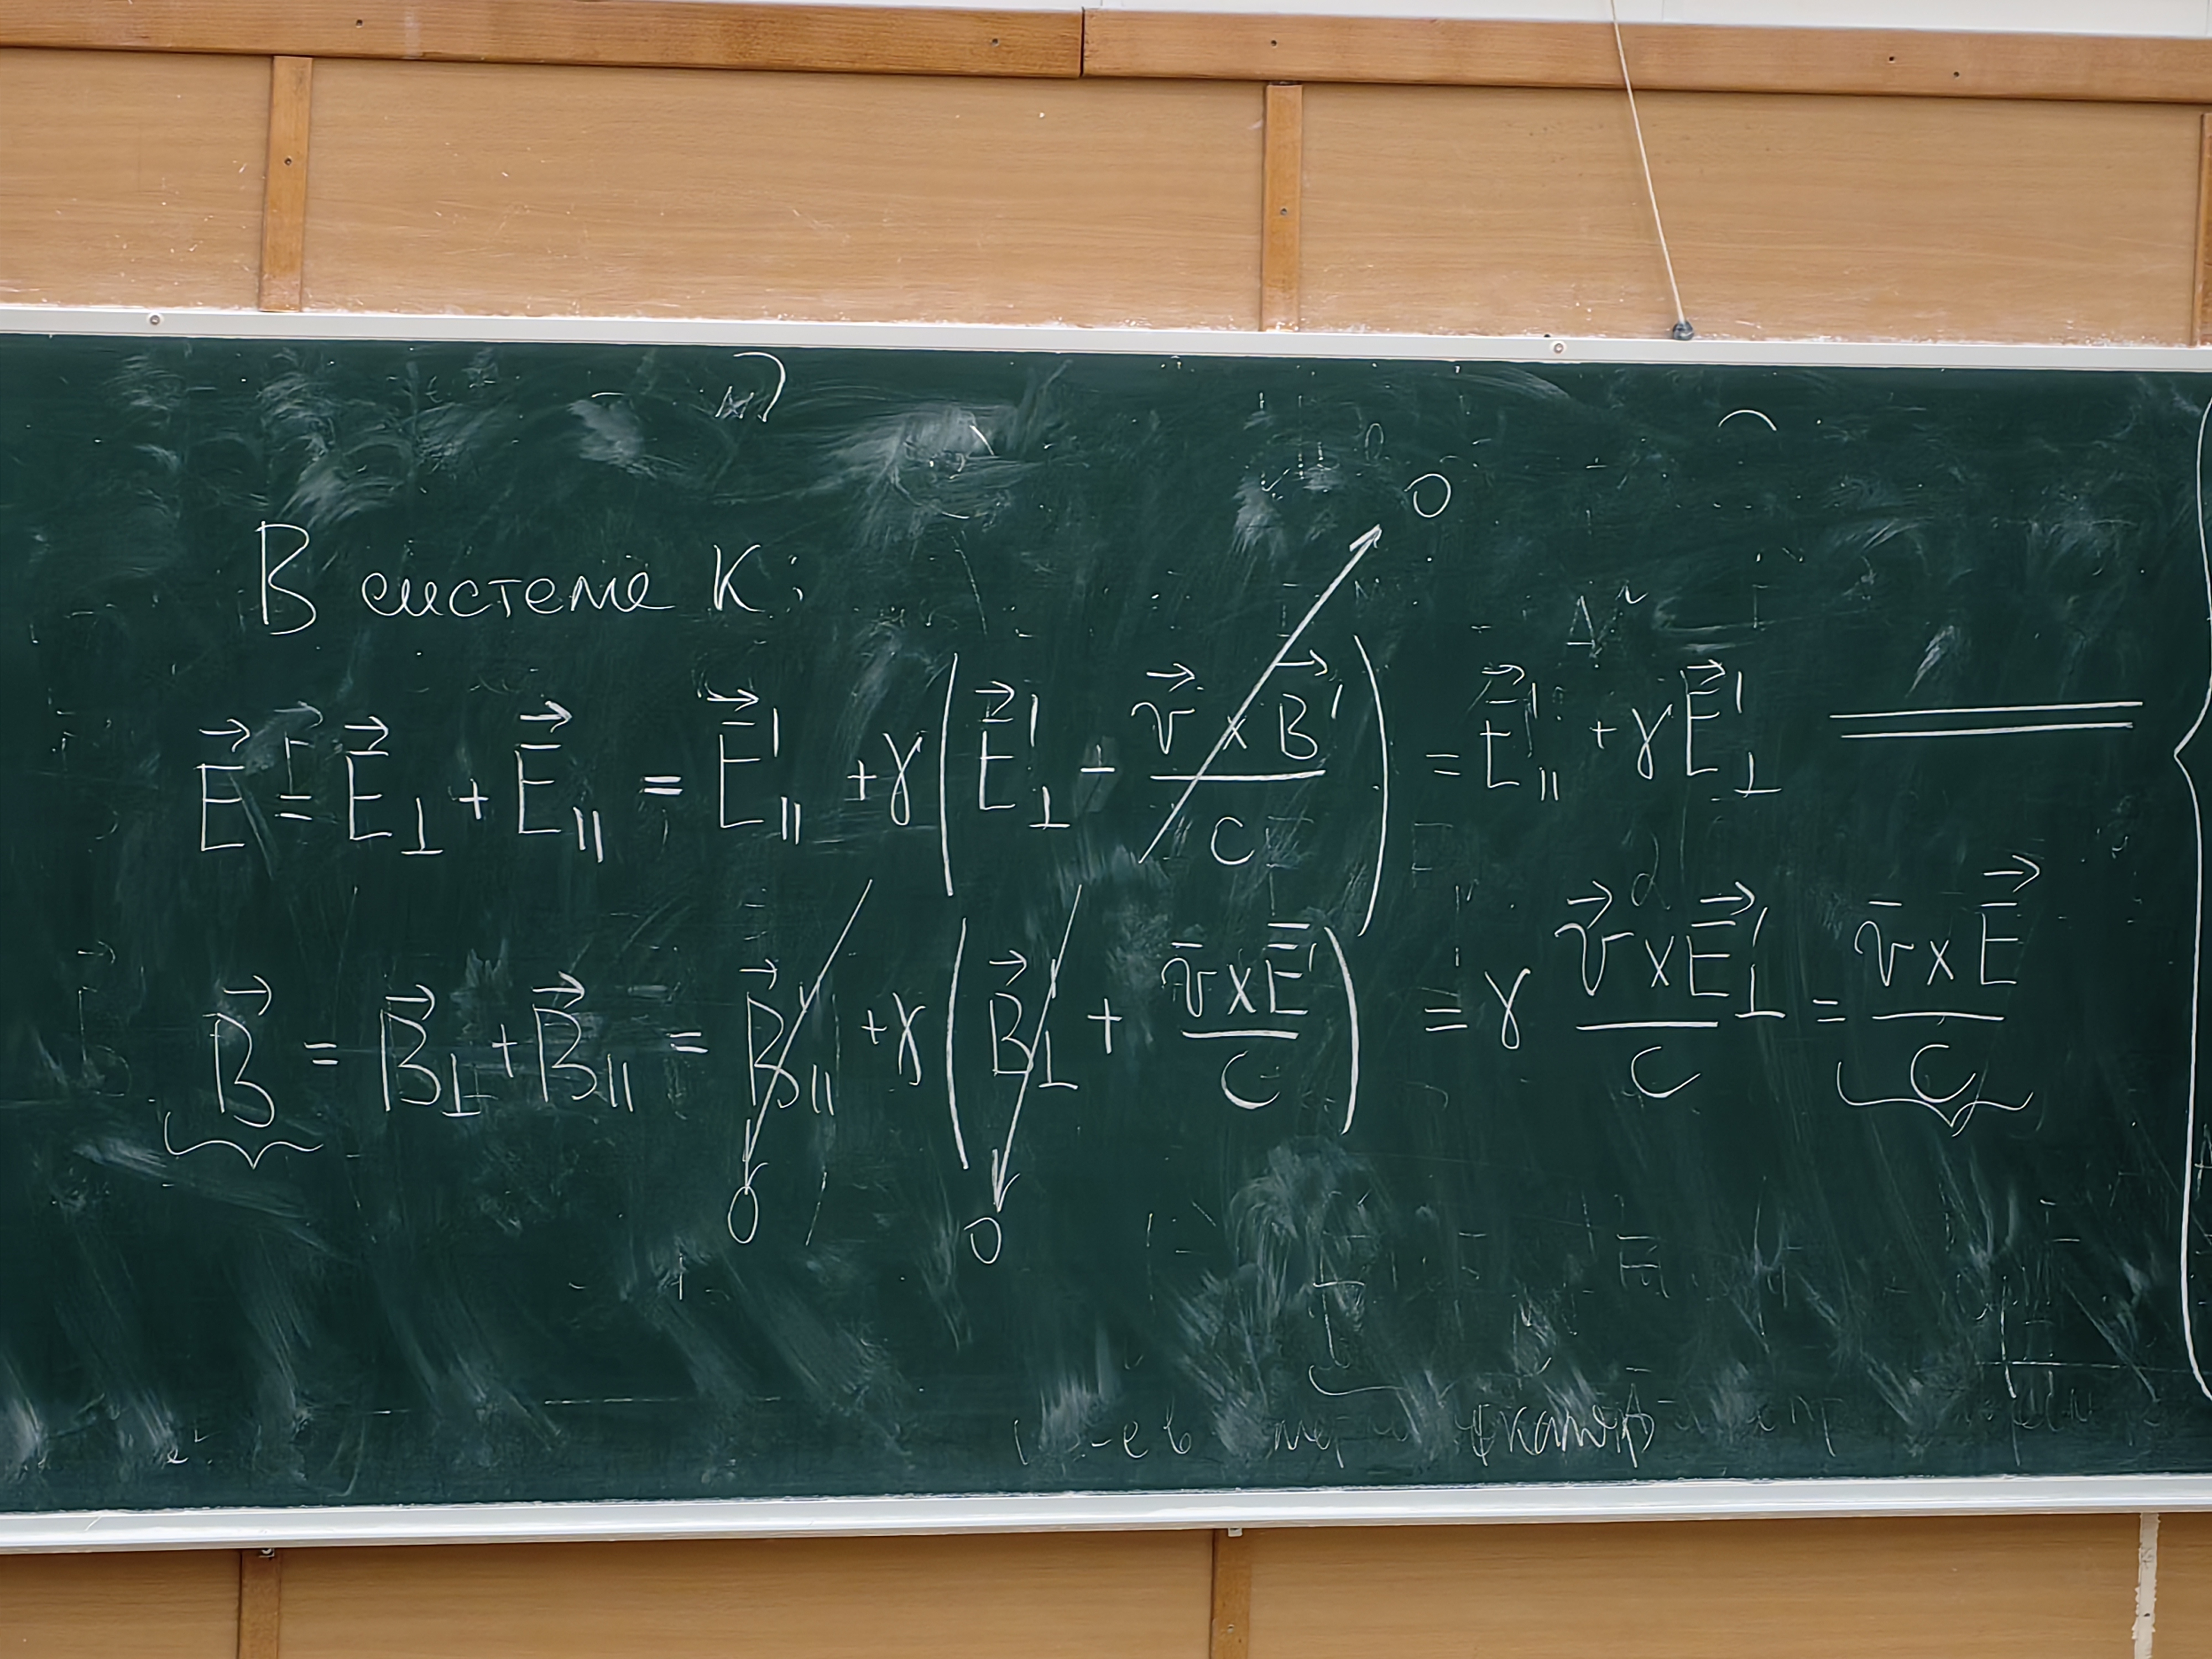 В системе K:
$\vec{E} = \vec{E}_{\perp} + \vec{E}_{\parallel} = \vec{E}'_{\parallel} + \gamma \left( \vec{E}'_{\perp} - \frac{\vec{v} \times \vec{B}'}{c} \right) = \vec{E}'_{\parallel} + \gamma \vec{E}'_{\perp}$
0
$\vec{B} = \vec{B}_{\perp} + \vec{B}_{\parallel} = \vec{B}'_{\parallel} + \gamma \left( \vec{B}'_{\perp} + \frac{\bar{v} \times \bar{E}'}{c} \right) = \gamma \frac{\vec{v} \times \vec{E}'_{\perp}}{c} = \frac{\bar{v} \times \vec{E}}{c}$
0 0